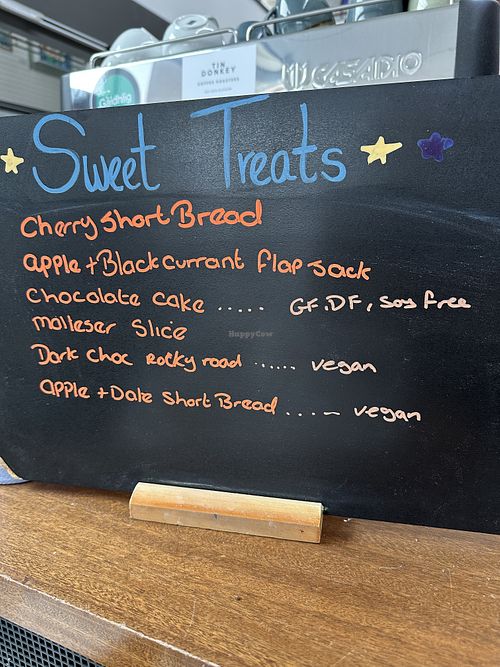 Gàidhlig
TIN
DONKEY
COFFEE ROASTERS
CASADIO
Sweet Treats
Cherry Short Bread
apple + Blackcurrant flap Jack
Chocolate cake ..... GF, DF, Soy free
Malleser Slice
Dark Choc Rocky road ...... vegan
apple + Date Short Bread .... vegan
HappyCow